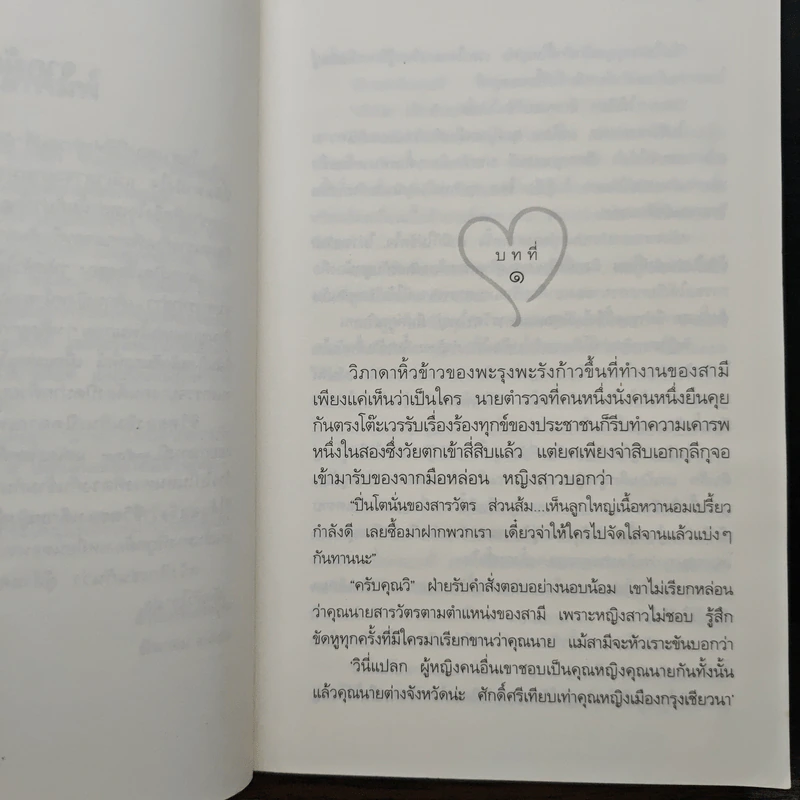 บทที่
๑
วิภาดาหิ้วข้าวของพะรุงพะรังก้าวขึ้นที่ทำงานของสามี
เพียงแค่เห็นว่าเป็นใคร นายตำรวจที่คนหนึ่งนั่งคนหนึ่งยืนคุย
กันตรงโต๊ะเวรรับเรื่องร้องทุกข์ของประชาชนก็รีบทำความเคารพ
หนึ่งในสองซึ่งวัยตกเข้าสี่สิบแล้ว แต่ยศเพียงจ่าสิบเอกกุลีกุจอ
เข้ามารับของจากมือหล่อน หญิงสาวบอกว่า
“ปิ่นโตนั่นของสารวัตร ส่วนส้ม...เห็นลูกใหญ่เนื้อหวานอมเปรี้ยว
กำลังดี เลยซื้อมาฝากพวกเรา เดี๋ยวจ่าให้ใครไปจัดใส่จานแล้วแบ่งๆ
กันทานนะ”
“ครับคุณวิ” ฝ่ายรับคำสั่งตอบอย่างนอบน้อม เขาไม่เรียกหล่อน
ว่าคุณนายสารวัตรตามตำแหน่งของสามี เพราะหญิงสาวไม่ชอบ รู้สึก
ขัดหูทุกครั้งที่มีใครมาเรียกขานว่าคุณนาย แม้สามีจะหัวเราะขันบอกว่า
‘วินี่แปลก ผู้หญิงคนอื่นเขาชอบเป็นคุณหญิงคุณนายกันทั้งนั้น
แล้วคุณนายต่างจังหวัดน่ะ ศักดิ์ศรีเทียบเท่าคุณหญิงเมืองกรุงเชียวนา’